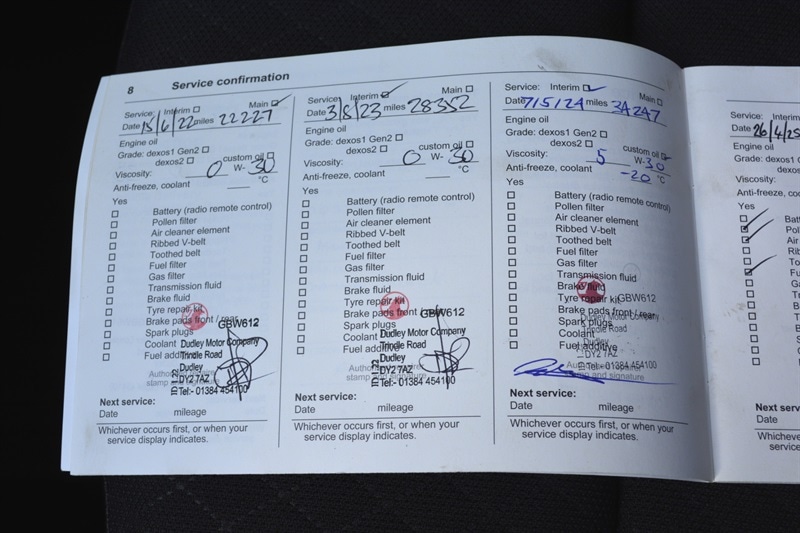 8 Service confirmation
Service: Interim Main
Date 15/6/22 miles 22227
Engine oil
Grade: dexos1 Gen2
dexos2 custom oil
Viscosity: 0 W- 30
Anti-freeze, coolant °C
Yes
Battery (radio remote control)
Pollen filter
Air cleaner element
Ribbed V-belt
Toothed belt
Fuel filter
Gas filter
Transmission fluid
Brake fluid
Tyre repair kit
Brake pads front / rear
GBW612
Spark plugs
Coolant
Dudley Motor Company
Fuel additive
Trindle Road
Dudley
DY2 7AZ
Tel:- 01384 454100
stamp and signature
Next service:
Date mileage
Whichever occurs first, or when your
service display indicates.
Service: Interim Main
Date 3/8/23 miles 28352
Engine oil
Grade: dexos1 Gen2
dexos2 custom oil
Viscosity: 0 W- 30
Anti-freeze, coolant °C
Yes
Battery (radio remote control)
Pollen filter
Air cleaner element
Ribbed V-belt
Toothed belt
Fuel filter
Gas filter
Transmission fluid
Brake fluid
Tyre repair kit
Brake pads front / rear
GBW612
Spark plugs
Coolant
Dudley Motor Company
Fuel additive
Trindle Road
Dudley
DY2 7AZ
Tel:- 01384 454100
stamp and signature
Next service:
Date mileage
Whichever occurs first, or when your
service display indicates.
Service: Interim Main
Date 7/5/24 miles 34247
Engine oil
Grade: dexos1 Gen2
dexos2 custom oil
Viscosity: 5 W- 30
Anti-freeze, coolant -20 °C
Yes
Battery (radio remote control)
Pollen filter
Air cleaner element
Ribbed V-belt
Toothed belt
Fuel filter
Gas filter
Transmission fluid
Brake fluid
Tyre repair kit
GBW612
Brake pads front / rear
Dudley Motor Company
Spark plugs
Trindle Road
Coolant
Dudley
Fuel additive
DY2 7AZ
Tel:- 01384 454100
stamp and signature
Next service:
Date mileage
Whichever occurs first, or when your
service display indicates.
Service:
Date 26/4/25
Engine oil
Grade: dexos1
dexos2
Viscosity:
Anti-freeze, co
Yes
Ba
Po
Air
Rib
To
Fu
Next serv
Date
Whichev
servic